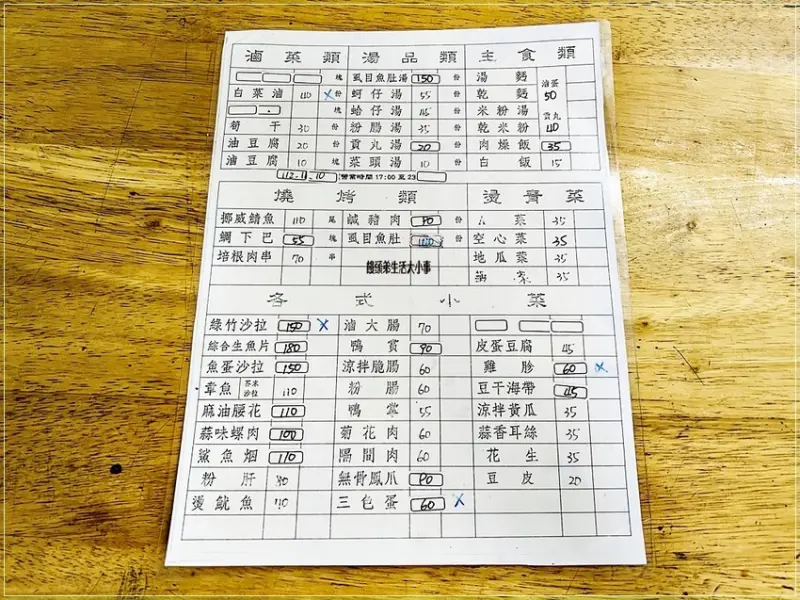 滷菜類 湯品類 主食類
塊 虱目魚肚湯 150 份 湯麵
白菜滷 40 X 份 蚵仔湯 55 份 乾麵 滷蛋 50
塊 蛤仔湯 45 份 米粉湯 貢丸
筍干 30 份 粉腸湯 35 份 乾米粉 40
油豆腐 20 份 貢丸湯 20 份 肉燥飯 35
滷豆腐 10 塊 菜頭湯 10 份 白飯 15
112.11.10 營業時間 17:00 至 23
燒烤類 燙青菜
挪威鯖魚 110 尾 鹹豬肉 90 份 菜 35
鯛下巴 55 塊 虱目魚肚 份 空心菜 35
培根肉串 70 串 地瓜菜 35
饅頭弟生活大小事 35
各式小菜
綠竹沙拉 150 X 滷大腸 70
綜合生魚片 180 鴨賞 90 皮蛋豆腐 45
魚蛋沙拉 150 涼拌脆腸 60 雞胗 60 X
章魚 芥末 沙拉 110 粉腸 60 豆干海帶 45
麻油腰花 110 鴨掌 55 涼拌黃瓜 35
蒜味螺肉 100 菊花肉 60 蒜香耳絲 35
鯊魚烟 110 隔間肉 60 花生 35
粉肝 80 無骨鳳爪 90 豆皮 20
燙魷魚 三色蛋 60 X